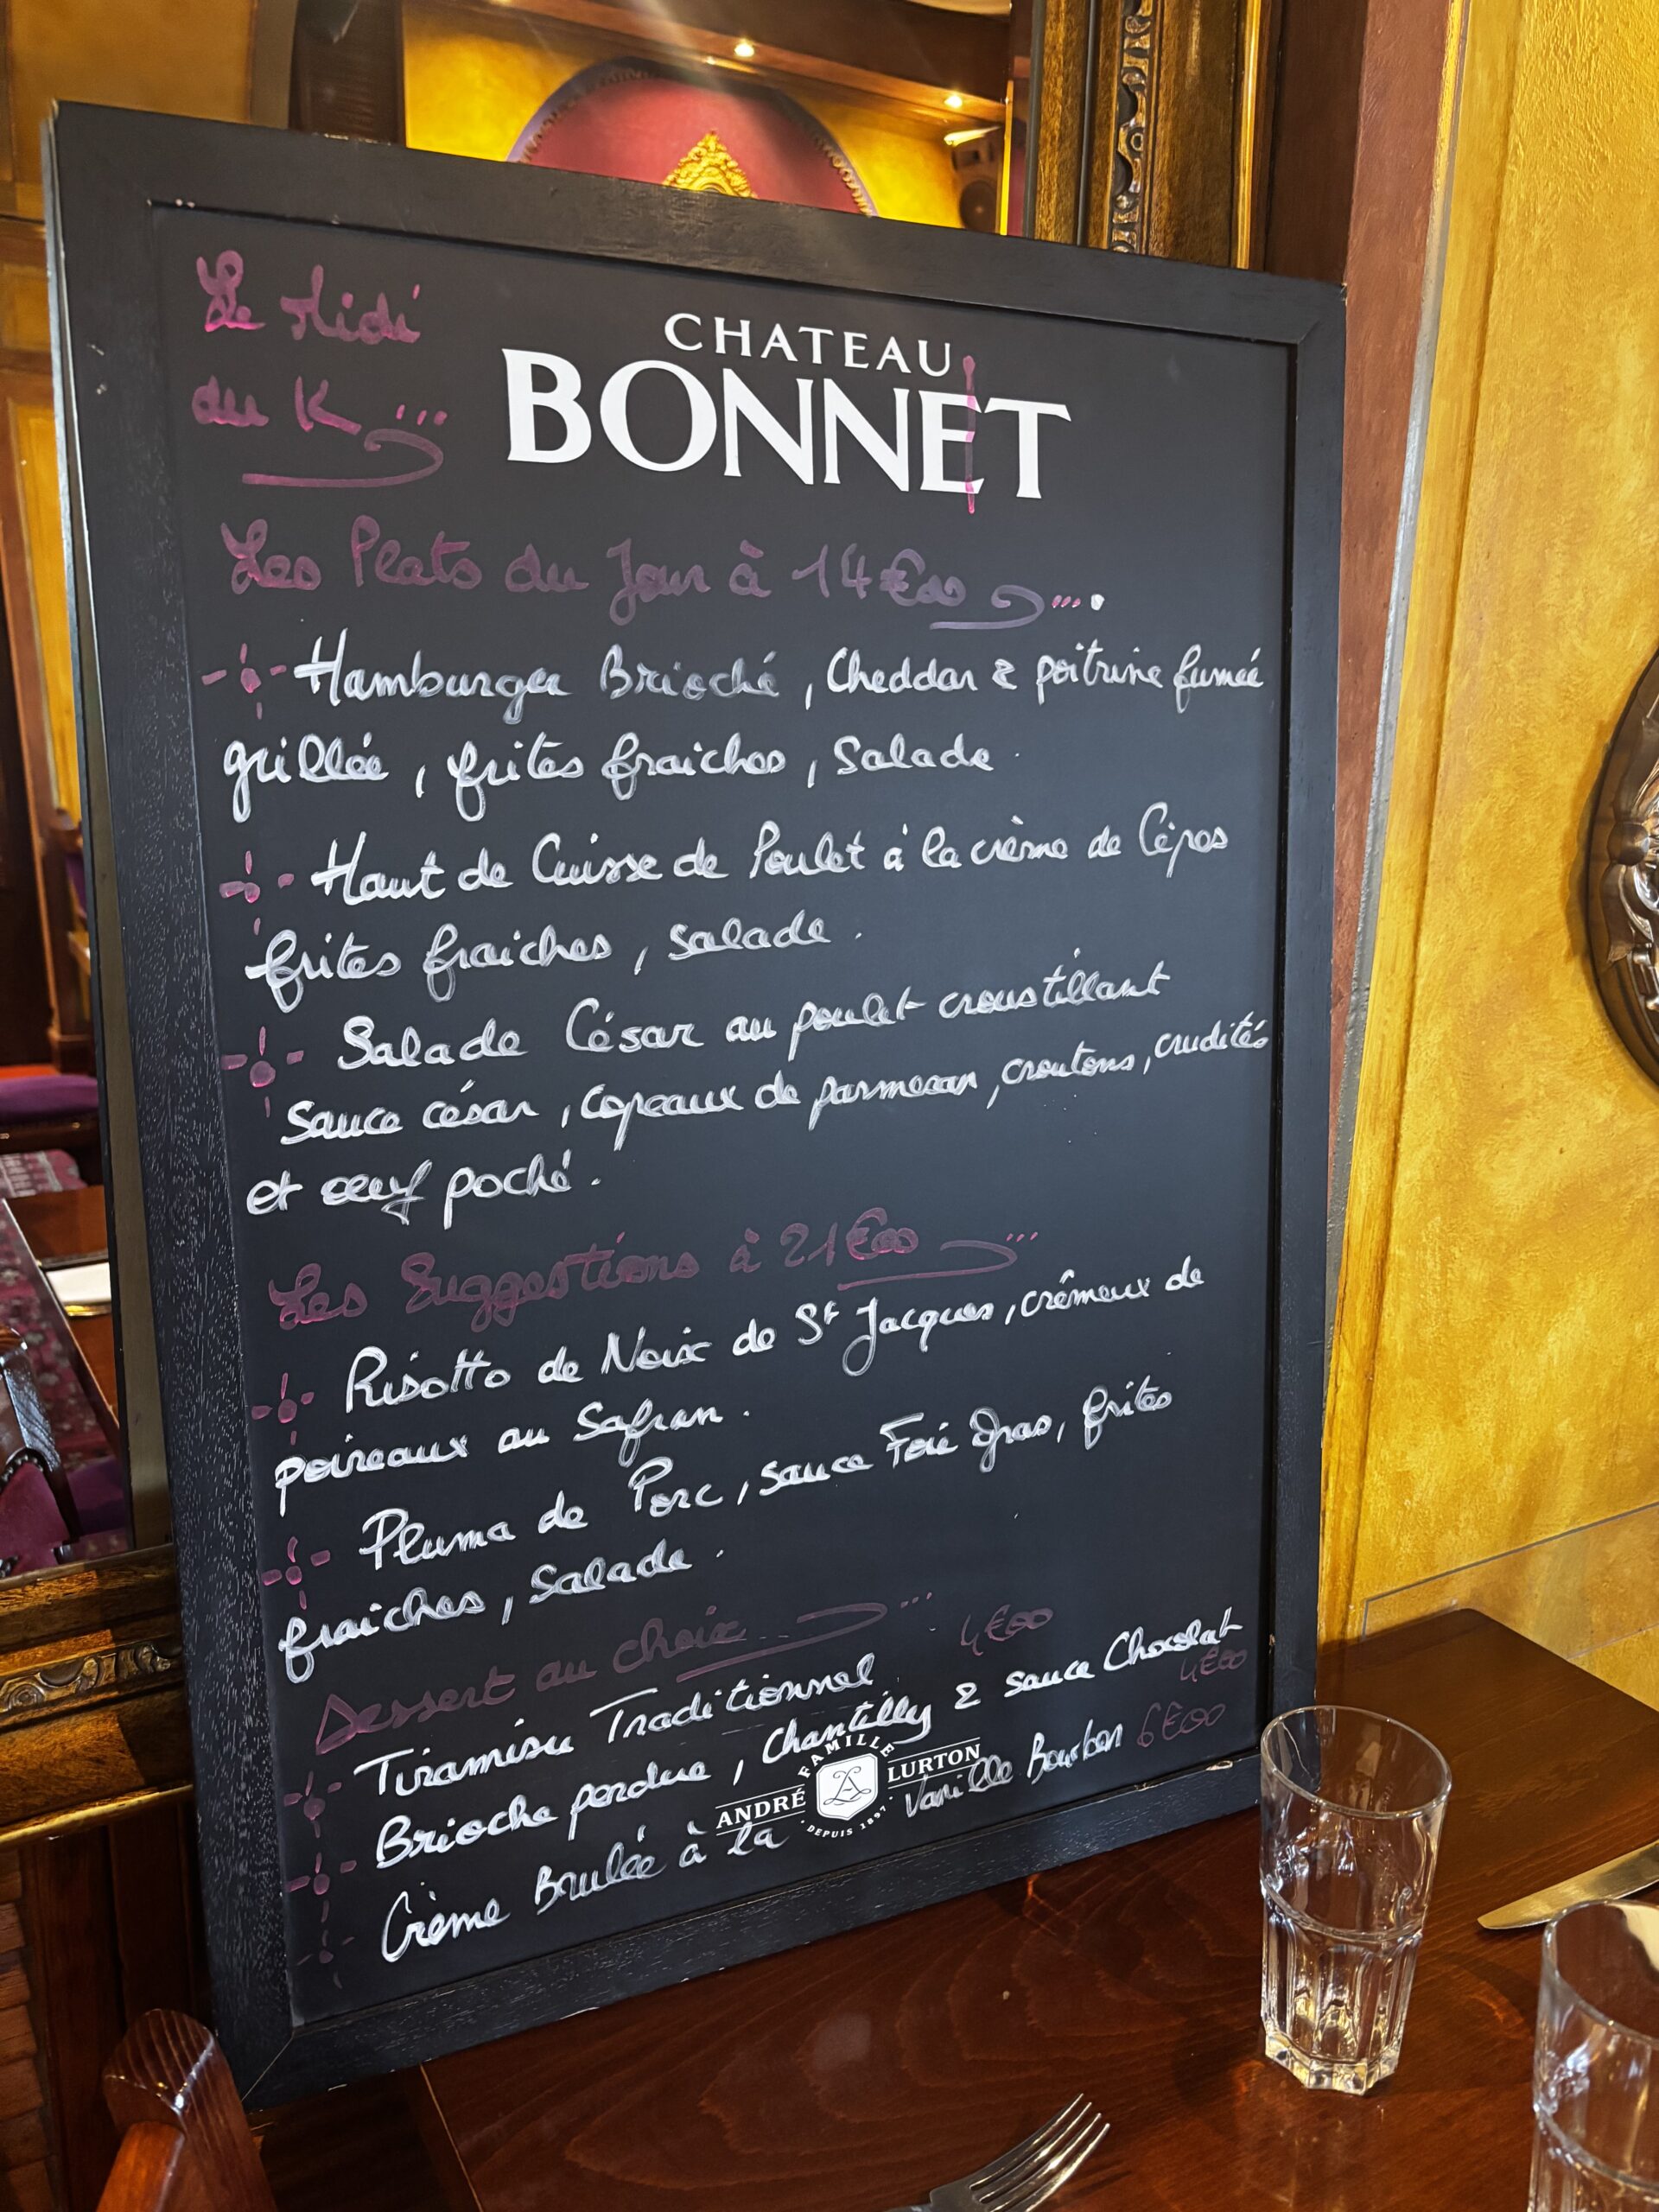 Le Midi
du K ...
CHATEAU
BONNET
Les Plats du Jour à 14€00 ....
Hamburger Brioché, Cheddar & poitrine fumée
grillée, frites fraiches, Salade.
Haut de Cuisse de Poulet à la crème de Cèpes
frites fraiches, salade.
Salade César au poulet croustillant
sauce césar, copeaux de parmesan, croutons, crudités
et œuf poché.
Les Suggestions à 21€00 ...
Risotto de Noix de St Jacques, crêmeux de
poireaux au Safran.
Pluma de Porc, sauce Foie Gras, frites
fraiches, Salade.
Dessert au choix ...
Tiramisu Traditionnel 4€00
Brioche perdue, Chantilly & sauce Chocolat 4€00
Crème Brulée à la Vanille Bourbon 6€00
FAMILLE
ANDRÉ LURTON
DEPUIS 1897